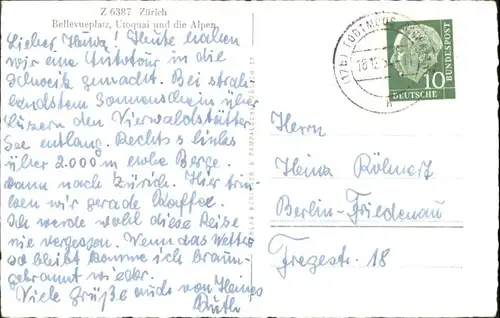 Z 6387 Zürich
Bellevueplatz, Utoquai und die Alpen
Lieber Heinz! Heute haben
wir eine Autotour in die
Schweiz gemacht. Bei strah-
lendstem Sonnenschein über
Luzern den Vierwaldstätter
See entlang. Rechts u links
über 2.000 m hohe Berge.
Dann nach Zürich. Hier trin-
ken wir gerade Kaffee.
Ich werde wohl diese Reise
nie vergessen. Wenn das Wetter
so bleibt komme ich braun-
gebrannt wieder.
Viele Grüße auch von Heines
Ruth
DEUTSCHE
BUNDESPOST
10
Herrn
Heinz
Berlin-Friedenau
Fregestr. 18